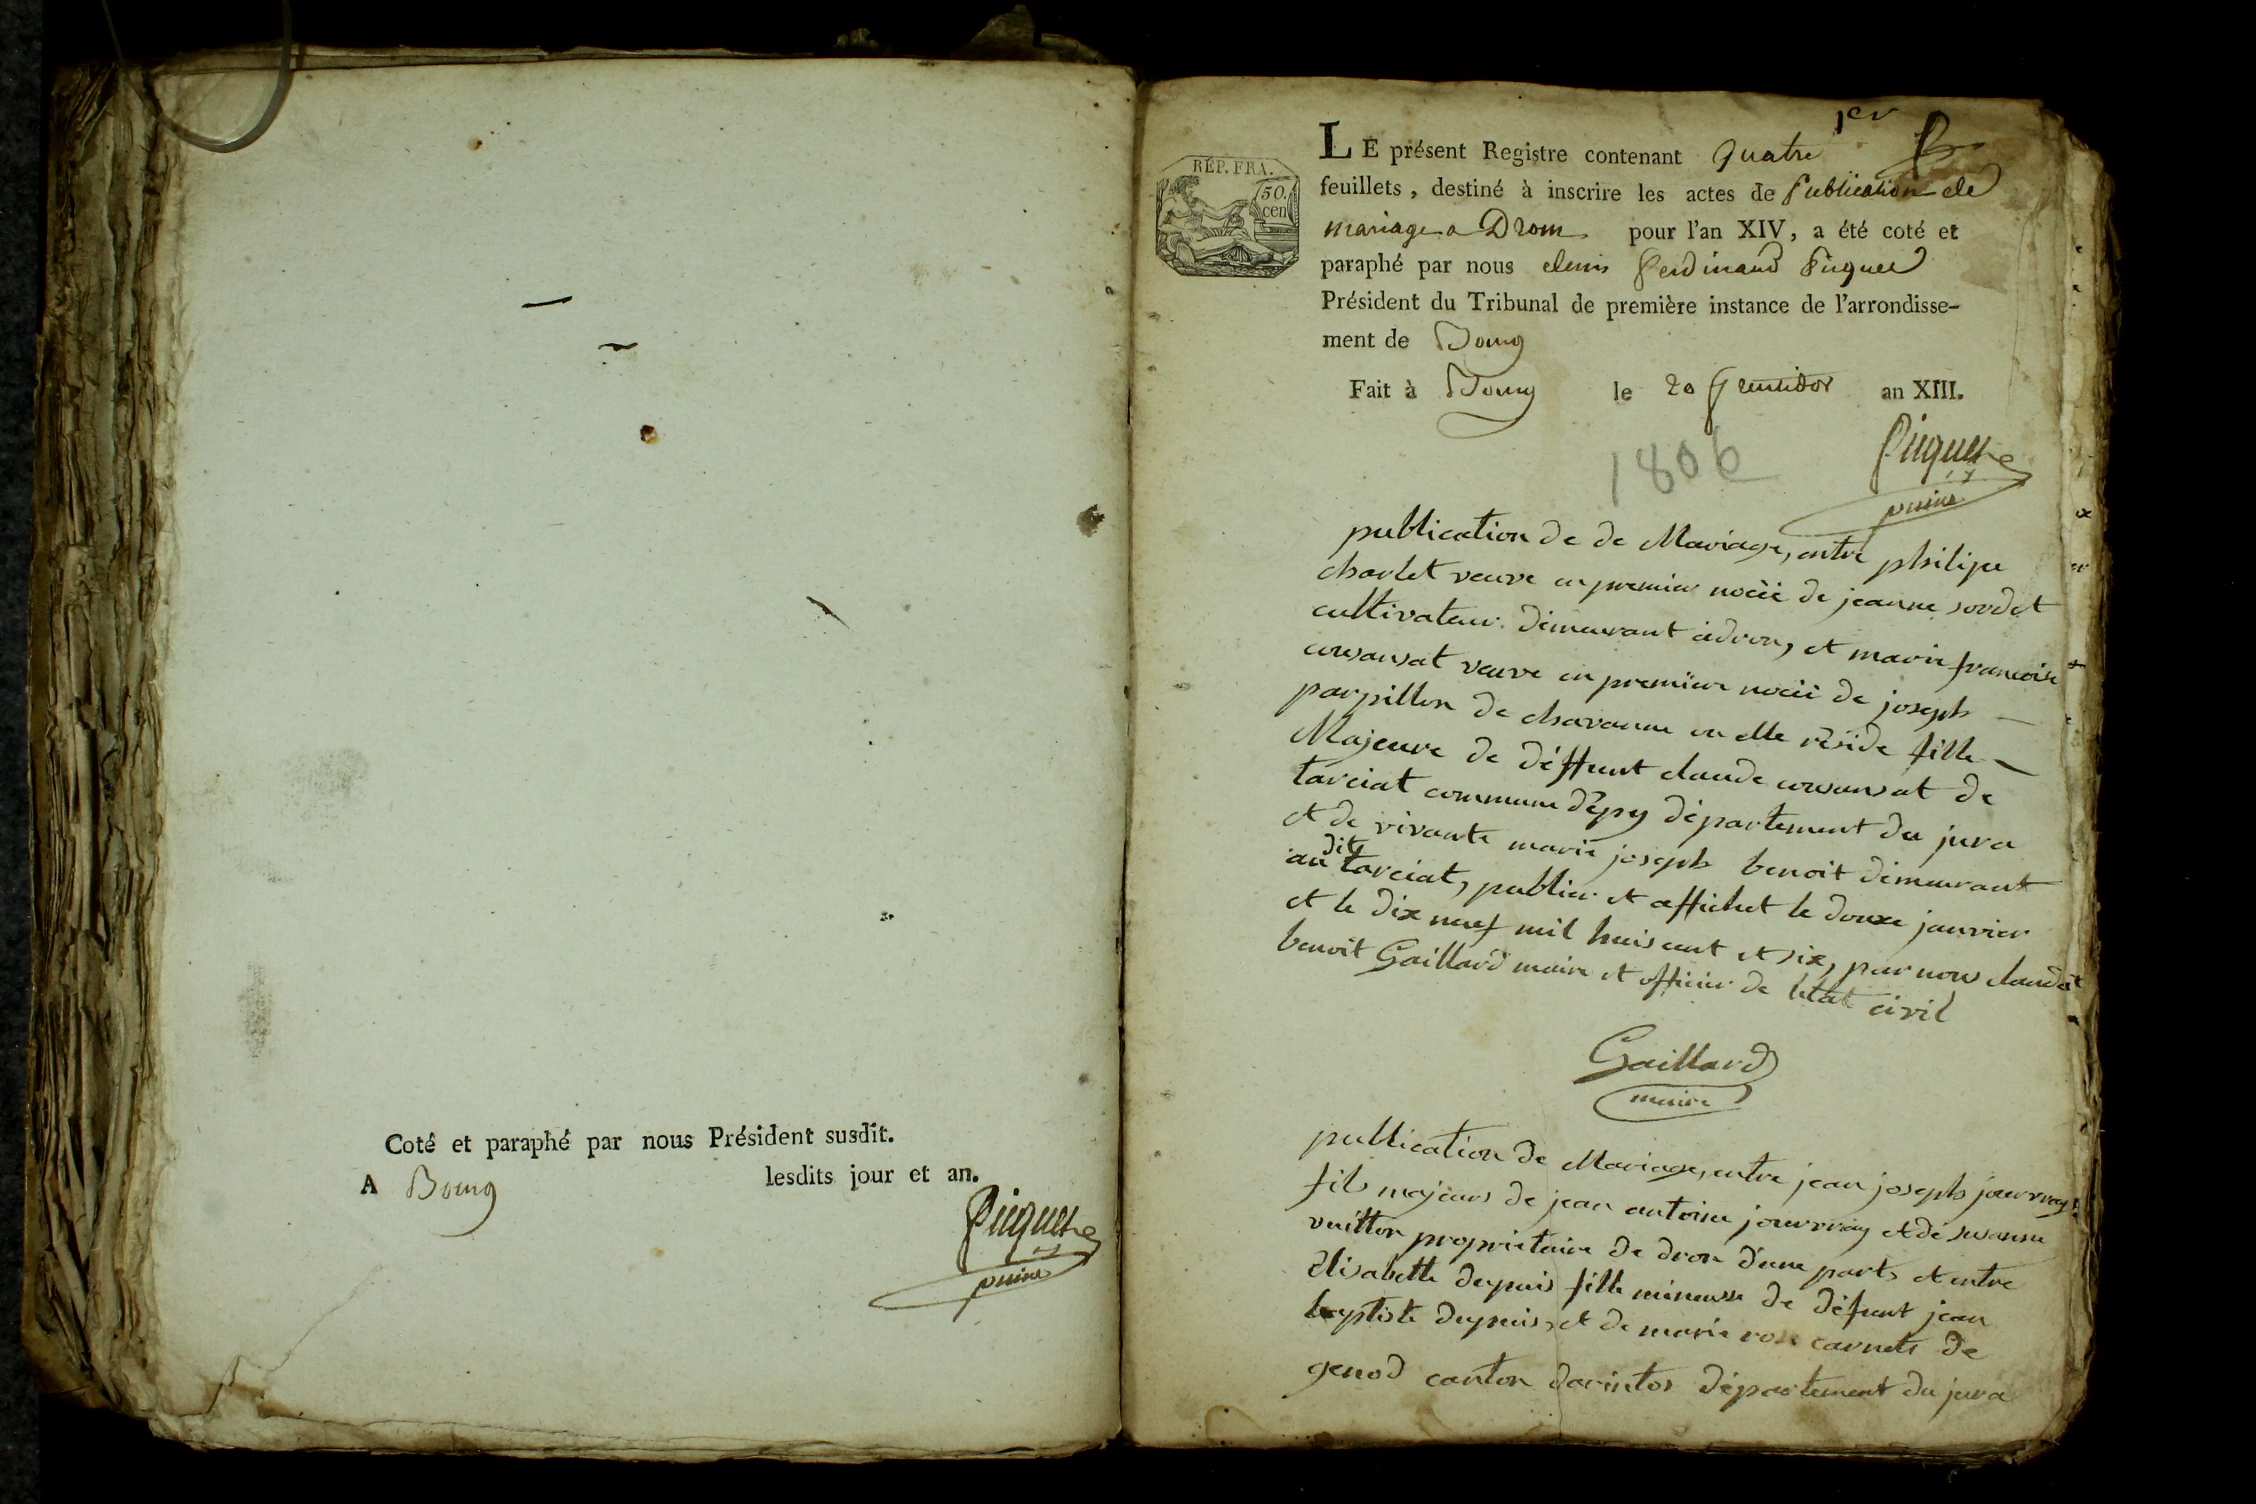 Coté et paraphé par nous Président susdit.
A Bourg lesdits jour et an.
Picquet
1er
RÉP. FRA.
50.
cen
LE présent Registre contenant quatre
feuillets, destiné à inscrire les actes de Publication de
mariage a Drom pour l'an XIV, a été coté et
paraphé par nous denis ferdinand Picquet
Président du Tribunal de première instance de l'arrondisse-
ment de Bourg
Fait à Bourg le 20 fructidor an XIII.
Picquet
1806
publication de de Mariage, entre philipe
charlet veuve en premier nocïe de jeanne sordet
cultivateur demeurant àdron, et marie francoise
cousansat veuve en premiere nocïe de joseph
parpillon de chavanne ou elle réside fille
Majeure de déffunt claude cousansat de
tarciat commune d'épy département du jura
et de vivante marie joseph benoit demeurant
au dit tarciat, publier et affichet le douze janvier
et le dix neuf mil huis cent et six, par nous claude
benoit Gaillard maire et officier de létat civil
Gaillard
maire
publication de Mariage, entre jean joseph jouvray
fils majeurs de jean antoine jouvray et de susanne
vuitton proprietaire de dron d'une part, et entre
Elisabette depuis fille mineure de défunt jean
baptiste depuis, et de marie rose carnets de
genod canton darintos département du jura